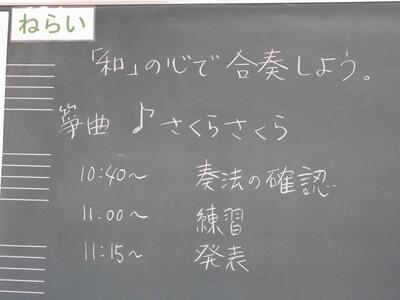 ねらい
「和」の心で合奏しよう。
箏曲 ♪さくらさくら
10:40～ 奏法の確認
11:00～ 練習
11:15～ 発表